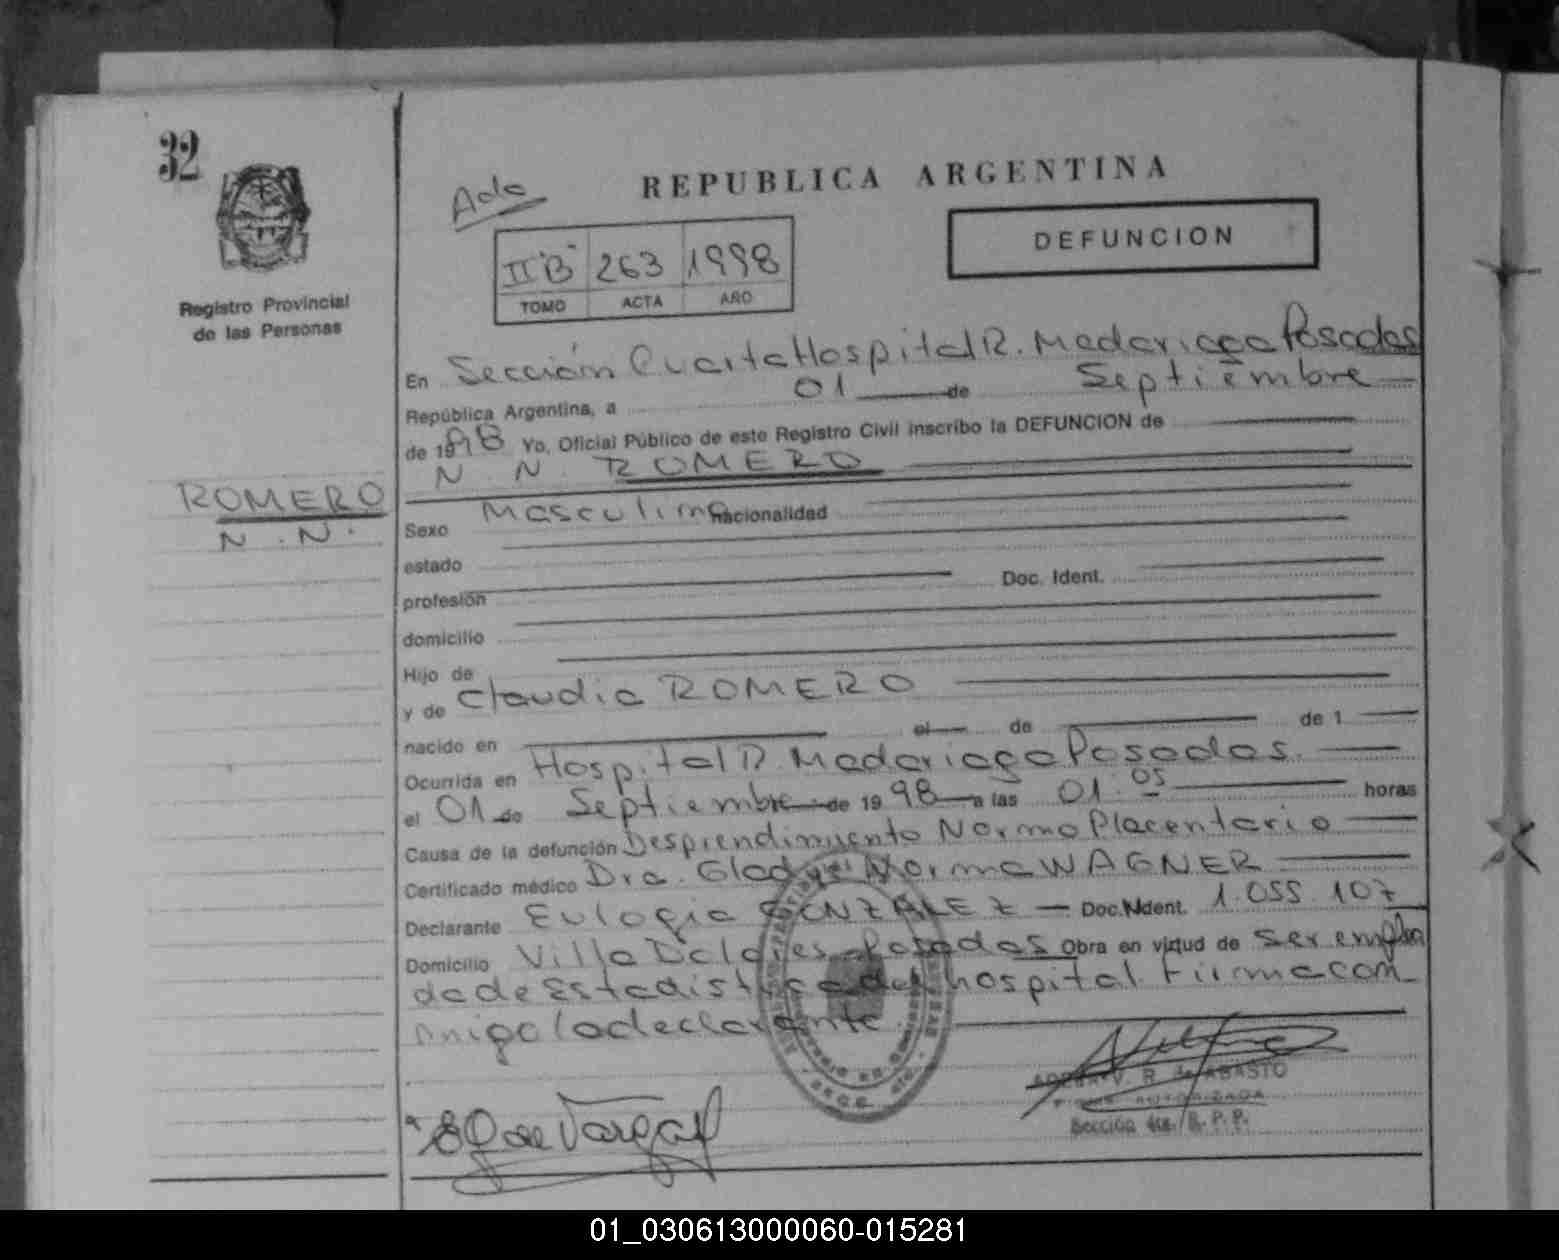 32
Registro Provincial
de las Personas
ROMERO
N. N.
REPUBLICA ARGENTINA
DEFUNCION
II "B" 263 1998
TOMO ACTA AÑO
En Sección Cuarta Hospital R. Madariaga Posadas
República Argentina, a 01 de Septiembre
de 1998 Yo, Oficial Público de este Registro Civil inscribo la DEFUNCION de
N. N. ROMERO
Sexo Masculino nacionalidad
estado
profesión Doc. Ident.
domicilio
Hijo de
y de Claudia ROMERO
nacido en el de de 1
Ocurrida en Hospital R. Madariaga Posadas.
el 01 de Septiembre de 1998 a las 01.05 horas
Causa de la defunción Desprendimiento Normo Placentario
Certificado médico Dra. Gladys Norma WAGNER
Declarante Eulogia GONZALEZ Doc. Ident. 1.055.107
Domicilio Villa Dolores Posadas Obra en virtud de ser emplea
da de Estadistica del hospital. Firma con
migo la declarante.
V. R. de ABASTO
AUTORIZADA
Sección 4ta. R. P. P.
01_030613000060-015281